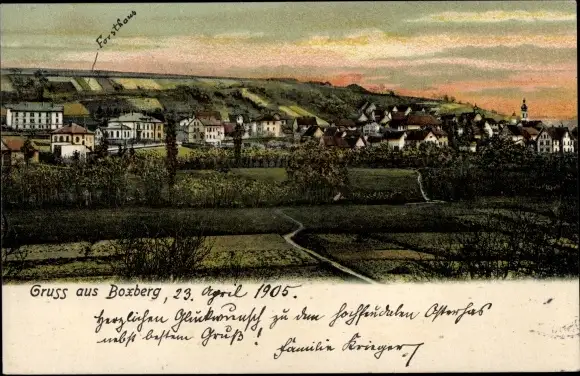 Forsthaus
Gruss aus Boxberg, 23. April 1905.
Herzlichen Glückwunsch! zu dem hochfeudalen Osterhas
nebst bestem Gruß!
Familie Krieger